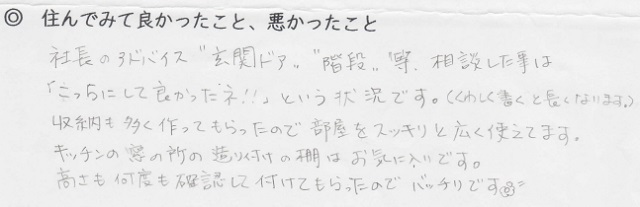 ◎ 住んでみて良かったこと、悪かったこと
社長のアドバイス〝玄関ドア〟〝階段〟等、相談した事は
「こっちにして良かったネ!!」という状況です。(くわしく書くと長くなります。)
収納も多く作ってもらったので部屋をスッキリと広く使えてます。
キッチンの窓の所の造り付けの棚はお気に入りです。
高さも何度も確認して付けてもらったのでバッチリです